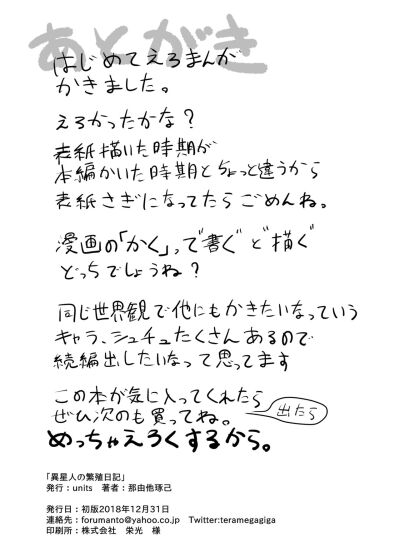 あとがき
はじめてえろまんが
かきました。
えろかったかな？
表紙描いた時期が
本編かいた時期とちょっと違うから
表紙さぎになってたらごめんね。
漫画の「かく」って"書く"と"描く"
どっちでしょうね？
同じ世界観で他にもかきたいなっていう
キャラ、シュチュたくさんあるので
続編出したいなって思ってます
この本が気に入ってくれたら
ぜひ次のも買ってね。
出たら
めっちゃえろくするから。
「異星人の繁殖日記」
発行：units　著者：那由他琢己
発行日：初版2018年12月31日
連絡先：forumanto@yahoo.co.jp　Twitter:teramegagiga
印刷所：株式会社　栄光　様